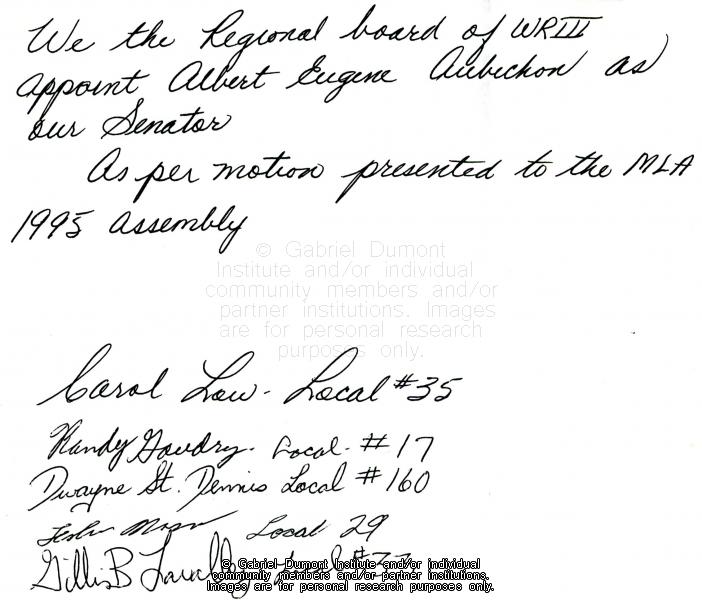 We the Regional board of WRIII
appoint Albert Eugene Aubichon as
our Senator
As per motion presented to the MLA
1995 Assembly
© Gabriel Dumont
Institute and/or individual
community members and/or
partner institutions. Images
are for personal research
purposes only.
Carol Low - Local #35
Randy Gaudry - Local - #17
Dwayne St. Dennis Local #160
Local 29
Gillis B Local
© Gabriel Dumont Institute and/or individual
community members and/or partner institutions.
Images are for personal research purposes only.